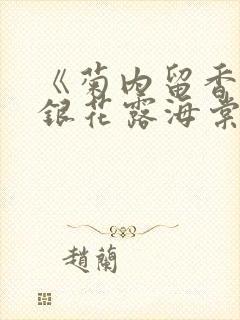 《菊内留香
銀花露海棠
趙蘭